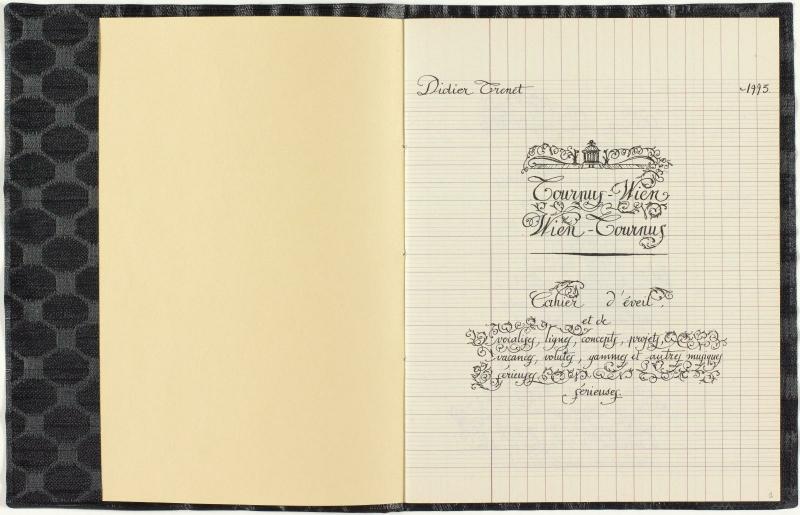 Didier Trenet
1995
Tournus-Wien
Wien-Tournus
Cahier d'éveil,
et de
vocalises, lignes, concepts, projets,
vacances, volutes, gammes et autres musiques
sérieuses
sérieuses.